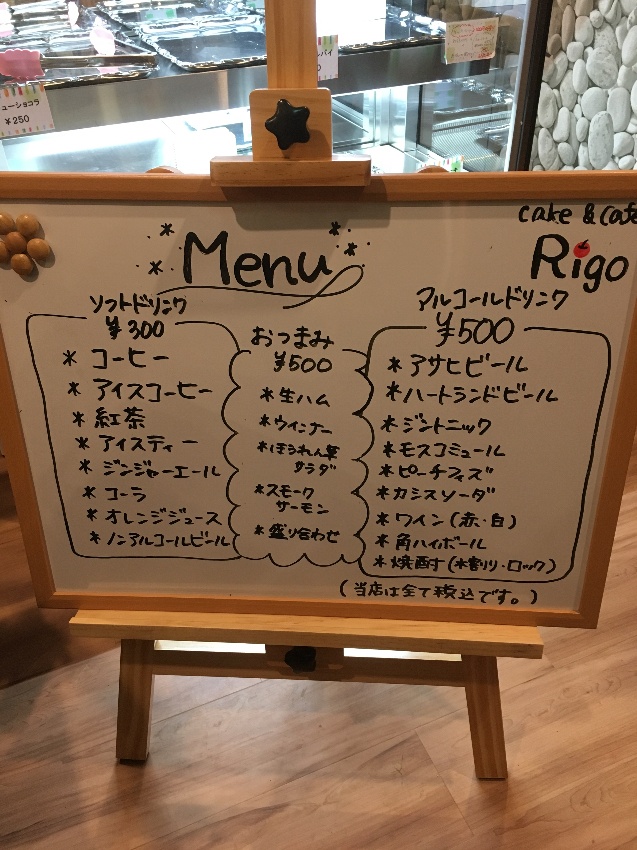 ューショコラ
¥250
パイ
cake & cafe
Rigo
Menu
ソフトドリンク
¥300
* コーヒー
* アイスコーヒー
* 紅茶
* アイスティー
* ジンジャーエール
* コーラ
* オレンジジュース
* ノンアルコールビール
おつまみ
¥500
* 生ハム
* ウインナー
* ほうれん草
サラダ
* スモーク
サーモン
* 盛り合わせ
アルコールドリンク
¥500
* アサヒビール
* ハートランドビール
* ジントニック
* モスコミュール
* ピーチフィズ
* カシスソーダ
* ワイン(赤・白)
* 角ハイボール
* 焼酎(水割り・ロック)
(当店は全て税込です。)